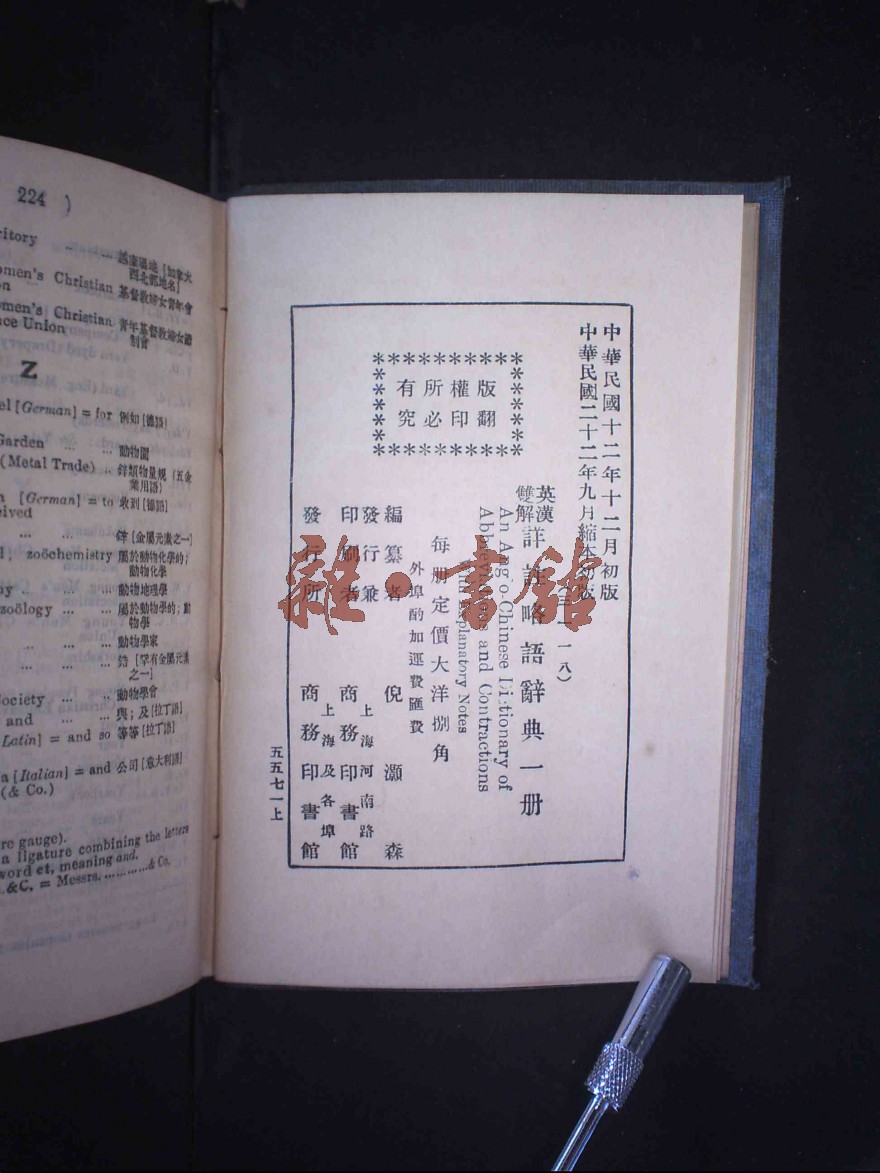 224 )
ritory .. ... 越康瑣地 [加拿大
西北部地名]
omen's Christian 基督教婦女青年會
on
omen's Christian 青年基督教婦女節
nce Union 制會
Z
el [German] = for 例如 [德語]
Garden ... ... 動物園
(Metal Trade) .. 鋅類物量規 (五金
業用語)
n [German] = to 收到 [德語]
eived
... ... ... 鋅 [金屬元素之一]
l, zoöchemistry 屬於動物化學的;
動物化學
hy .. ... ... 動物地理學
zoölogy ... ... 屬於動物學的; 動
物學
... ... ... 動物學家
... ... ... 鋯 [罕有金屬元素
之一]
Society ... .. 動物學會
and ... ... 與; 及 [拉丁語]
[Latin] = and so 等等 [拉丁語]
a [Italian] = and 公司 [意大利語]
(& Co.)
re gauge).
a ligature combining the letters
word et, meaning and.
.&C. = Messrs. ............& Co.
中華民國十二年十二月初版
中華民國二十二年九月縮本初版
一一八)
英漢雙解 詳註略語辭典一册
An Anglo-Chinese Dictionary of
Abbreviations and Contractions
With Explanatory Notes
每册定價大洋捌角
外埠酌加運費匯費
編纂者 倪灝森
發行兼印刷者 上海河南路 商務印書館
發行所 上海及各埠 商務印書館
版權所有
翻印必究
五五七一上
雜·書館